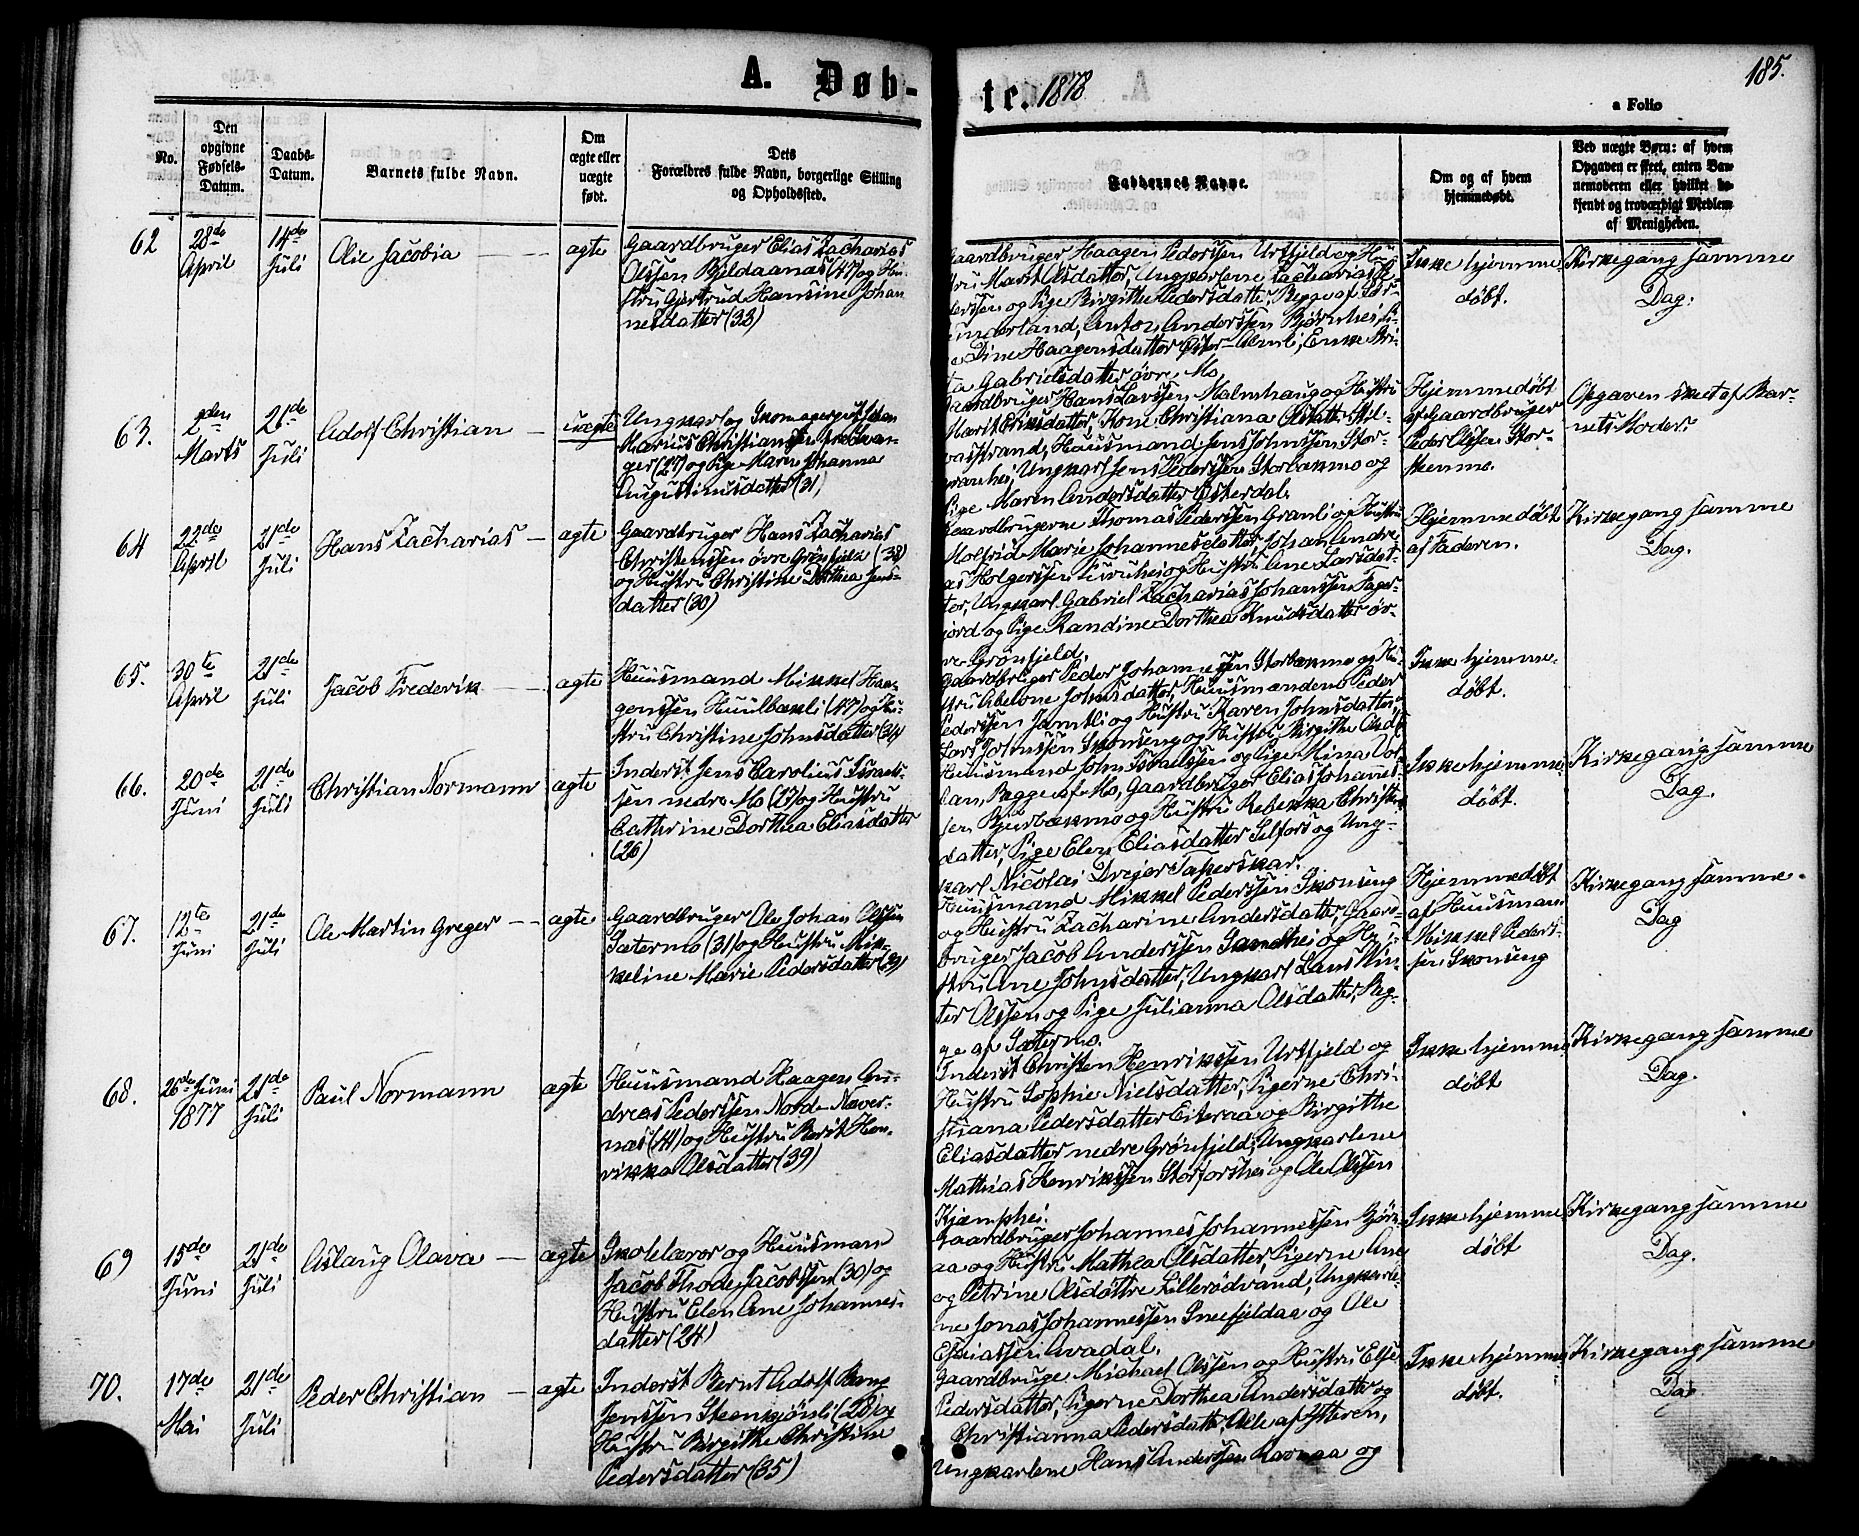 185.
A. Døb-
te. 1878
a Folio
No.
Den
opgivne
Fødsels-
Datum.
Daabs-
Datum.
Barnets fulde Navn.
Om
ægte eller
uægte
født.
Dets
Forældres fulde Navn, borgerlige Stilling
og Opholdssted.
Faddernes Navne.
Om og af hvem
hjemmedøbt.
Ved uægte Børn: af hvem
Opgaven er skeet, enten Bar-
nemoderen eller hvilket be-
kjendt og troværdigt Medlem
af Menigheden.
62
28de
April
14de
Juli
Olie Jacobia
ægte
Gaardbruger Elias Zacharias
Olssen Bildaanæs (47) og Hu-
stru Gjertrud Hansine Johan
nesdatter (33)
Gaardbruger Haagen Pederssen Urtfjeld og Hu-
stru Marit Olsdatter, Ungkarlene Zacharias Pe-
derssen og Pige Birgitte Pedersdatter, Begge af Stor-
underland, Anton Anderssen Bjørnhei, Pi-
ge Dine Haagensdatter Øster-
Gabrielsdatter øvre Mo.
Ikke hjemme
døbt.
Kirkegang samme
Dag.
63.
2den
Marts
21de
Juli
Adolf Christian
uægte
Ungkarl og Skomagergut Johan
Marius Christianssen
(27) og Pige Maren Johanna
Augustinusdatter (31)
Gaardbruger Hans Larssen Malmhaug og Hustru
Marit Eriksdatter, Kone Christiana Olsdatter
strand, Huusmand Jens Johnssen Stor-
granhei, Ungkarl Jens Pederssen Storbækmo og
Pige Maren Andersdatter Østerdal.
Hjemmedøbt
af Gaardbruger
Peder Olssen Stor-
stenmo.
Opgaven skeet af Bar-
nets Moder.
64
22de
April
21de
Juli
Hans Zacharias
ægte
Gaardbruger Hans Zacharias
Christenssen øvre Grønfjeld (38)
og Hustru Christine Dorthea Jens-
datter (30)
Gaardbrugerne Thomas Pederssen Granli og Hustru
Molfrid Marie Johannesdatter, Johan Andre-
as Holgerssen Furuhei og Hustru Ane Larsdat-
ter, Ungkarl Gabriel Zacharias Johanssen Fager-
jord og Pige Randine Dorthea Knudsdatter øv-
re Grønfjeld.
Hjemmedøbt
af Faderen.
Kirkegang samme
Dag.
65.
30te
April
21de
Juli
Jacob Frederik
ægte
Huusmand Mikkel Haa-
genssen Huulbækli (47) og Hu-
stru Christine Johnsdatter (34)
Gaardbruger Peder Johannessen Storbækmo og Hu-
stru Abelone Johnsdatter, Huusmændene Peder
Pederssen Jamtli og Hustru Karen Johnsdatter,
Lars Johnssen Skonseng og Hustru Birgithe
Ikke hjemme-
døbt.
66.
20de
Juni
21de
Juli
Christian Normann
ægte
Inderst Jens Carolius Israels-
sen nedre Mo (27) og Hustru
Cathrine Dorthea Eliasdatter
(26)
Huusmand John Israelssen og Pige Mina
Begge af Mo, Gaardbruger Elias Johannes-
sen Bjurbækmo og Hustru Rebekka Christens
datter, Pige Elen Eliasdatter Selfors og Ung-
karl Nicolai Dreyer
Ikke hjemme
døbt.
Kirkegang samme
Dag.
67.
12te
Juni
21de
Juli
Ole Martin Greger
ægte
Gaardbruger Ole Johan Olssen
Sætermo (31) og Hustru Mik-
keline Marie Pedersdatter (39)
Huusmand Mikkel Pederssen Skonseng
og Hustru Zacharine Andersdatter, Gaard-
bruger Jacob Anderssen Sandhei og Hu-
stru Ane Johnsdatter, Ungkarl Lars Pin-
ter Olssen og Pige Julianna Olsdatter, Beg-
ge af Sætermo.
Hjemmedøbt
af Huusman
Mikkel Peders-
sen Skonseng
Kirkegang samme
Dag
68.
26de Juni
1877
21de
Juli
Paul Normann
ægte
Huusmand Haagen An-
dreas Pederssen Nord-Næver-
næs (41) og Hustru Berit Hen-
rikka Olsdatter (39)
Inderst Christen Henrikssen Urtfjeld og
Hustru Sophie Nielsdatter, Pigerne Chri-
stiana Pedersdatter Eiteraa og Birgithe
Eliasdatter nedre Grønfjeld, Ungkarlene
Mathias Henrikssen Storforshei og Ole Olssen
Kjæmphei.
Ikke hjemme
døbt
Kirkegang samme
Dag.
69
15de
Juni
21de
Juli
Aslaug Olava
ægte
Skolelærer og Huusman
Jacob Thode Jacobssen (30) og
Hustru Elen Ane Johannes-
datter (24)
Gaardbruger Johannes Johannessen Bjørn-
aa og Hustru Mathea Olsdatter, Pigerne Ane
og Petrine Olsdøttre Lillerødvand, Ungkarle-
ne Jonas Johannessen Snefjeldaa og Ole
Esaiassen Avadal.
Ikke hjemme
døbt
Kirkegang samme
Dag.
70.
17de
Mai
21de
Juli
Peder Christian
ægte
Inderst Bernt Adolf Bang
Jenssen Steensjønli (28) og
Hustru Birgithe Christine
Pedersdatter (35)
Gaardbruge Michael Olssen og Hustru Else
Pedersdatter, Pigerne Dorthea Andersdatter og
Christianna Pedersdatter, Alle af Ytteren,
Ungkarlene Hans Anderssen Ravnaa og
Ikke hjemme
døbt.
Kirkegang samme
Dag